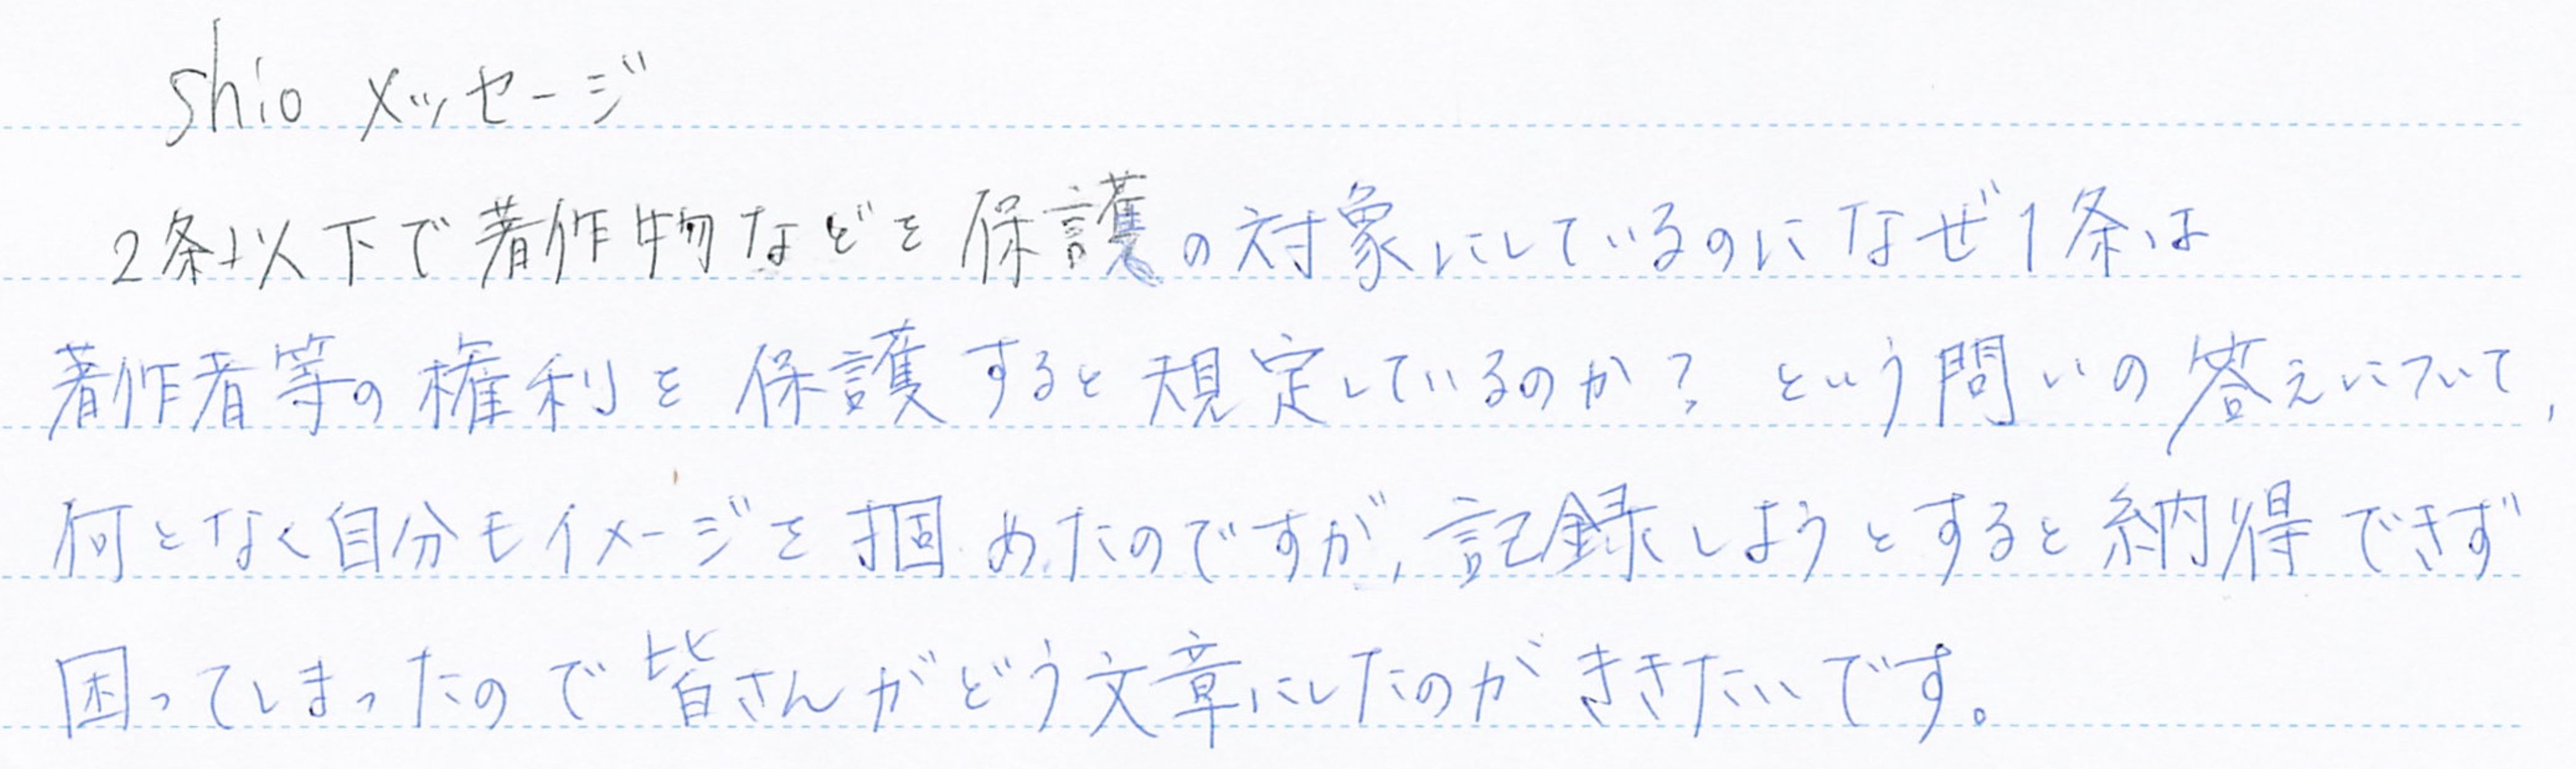 shio メッセージ
2条以下で著作物などを保護の対象にしているのになぜ1条は
著作者等の権利を保護すると規定しているのか？という問いの答えについて,
何となく自分もイメージを掴めたのですが,記録しようとすると納得できず
困ってしまったので皆さんがどう文章にしたのがききたいです。